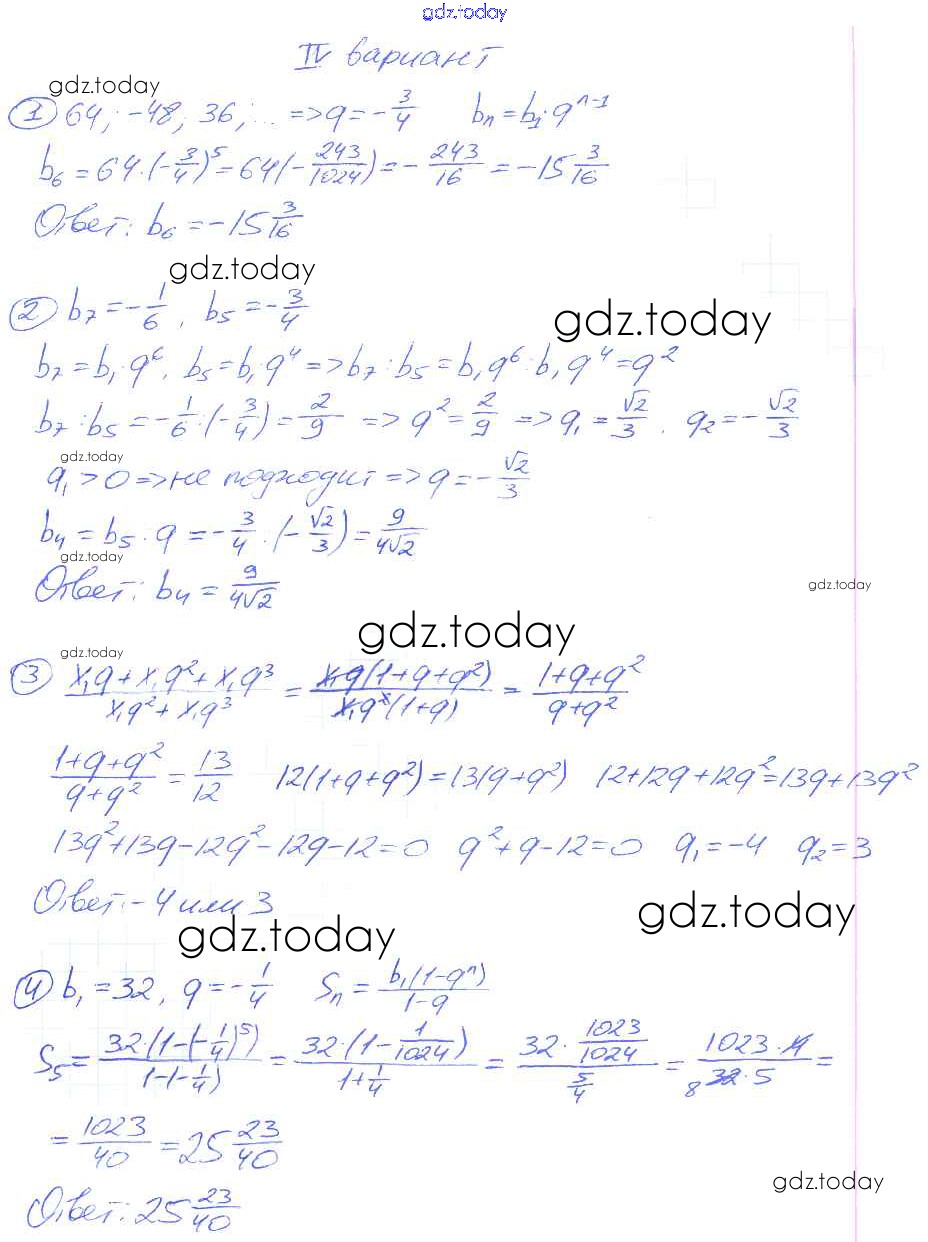 gdz.today
IV вариант
gdz.today
1 64; -48; 36; ... => q = -3/4 bₙ = b₁·qⁿ⁻¹
b₆ = 64·(-3/4)⁵ = 64(-243/1024) = -243/16 = -15 3/16
Ответ: b₆ = -15 3/16
gdz.today
2 b₇ = -1/6, b₅ = -3/4
gdz.today
b₇ = b₁·q⁶, b₅ = b₁·q⁴ => b₇:b₅ = b₁q⁶:b₁q⁴ = q²
b₇:b₅ = -1/6:(-3/4) = 2/9 => q² = 2/9 => q₁ = √2/3, q₂ = -√2/3
gdz.today
q₁ > 0 => не подходит => q = -√2/3
b₄ = b₅·q = -3/4·(-√2/3) = 9/4√2
gdz.today
gdz.today
Ответ: b₄ = 9/4√2
gdz.today
gdz.today
gdz.today
3 (x₁q + x₁q² + x₁q³)/(x₁q² + x₁q³) = (x₁q(1+q+q²))/(x₁q²(1+q)) = (1+q+q²)/(q+q²)
(1+q+q²)/(q+q²) = 13/12 12(1+q+q²) = 13(q+q²) 12+12q+12q² = 13q+13q²
13q²+13q-12q²-12q-12=0 q²+q-12=0 q₁=-4 q₂=3
Ответ: -4 или 3
gdz.today
gdz.today
4 b₁ = 32, q = -1/4 Sₙ = b₁(1-qⁿ)/1-q
S₅ = 32·(1-(-1/4)⁵)/1-(-1/4) = 32·(1-1/1024)/1+1/4 = 32·1023/1024/5/4 = 1023·4/8 32·5 =
= 1023/40 = 25 23/40
gdz.today
Ответ: 25 23/40